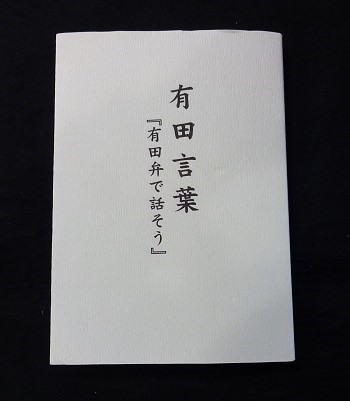 有田言葉
『有田弁で話そう』